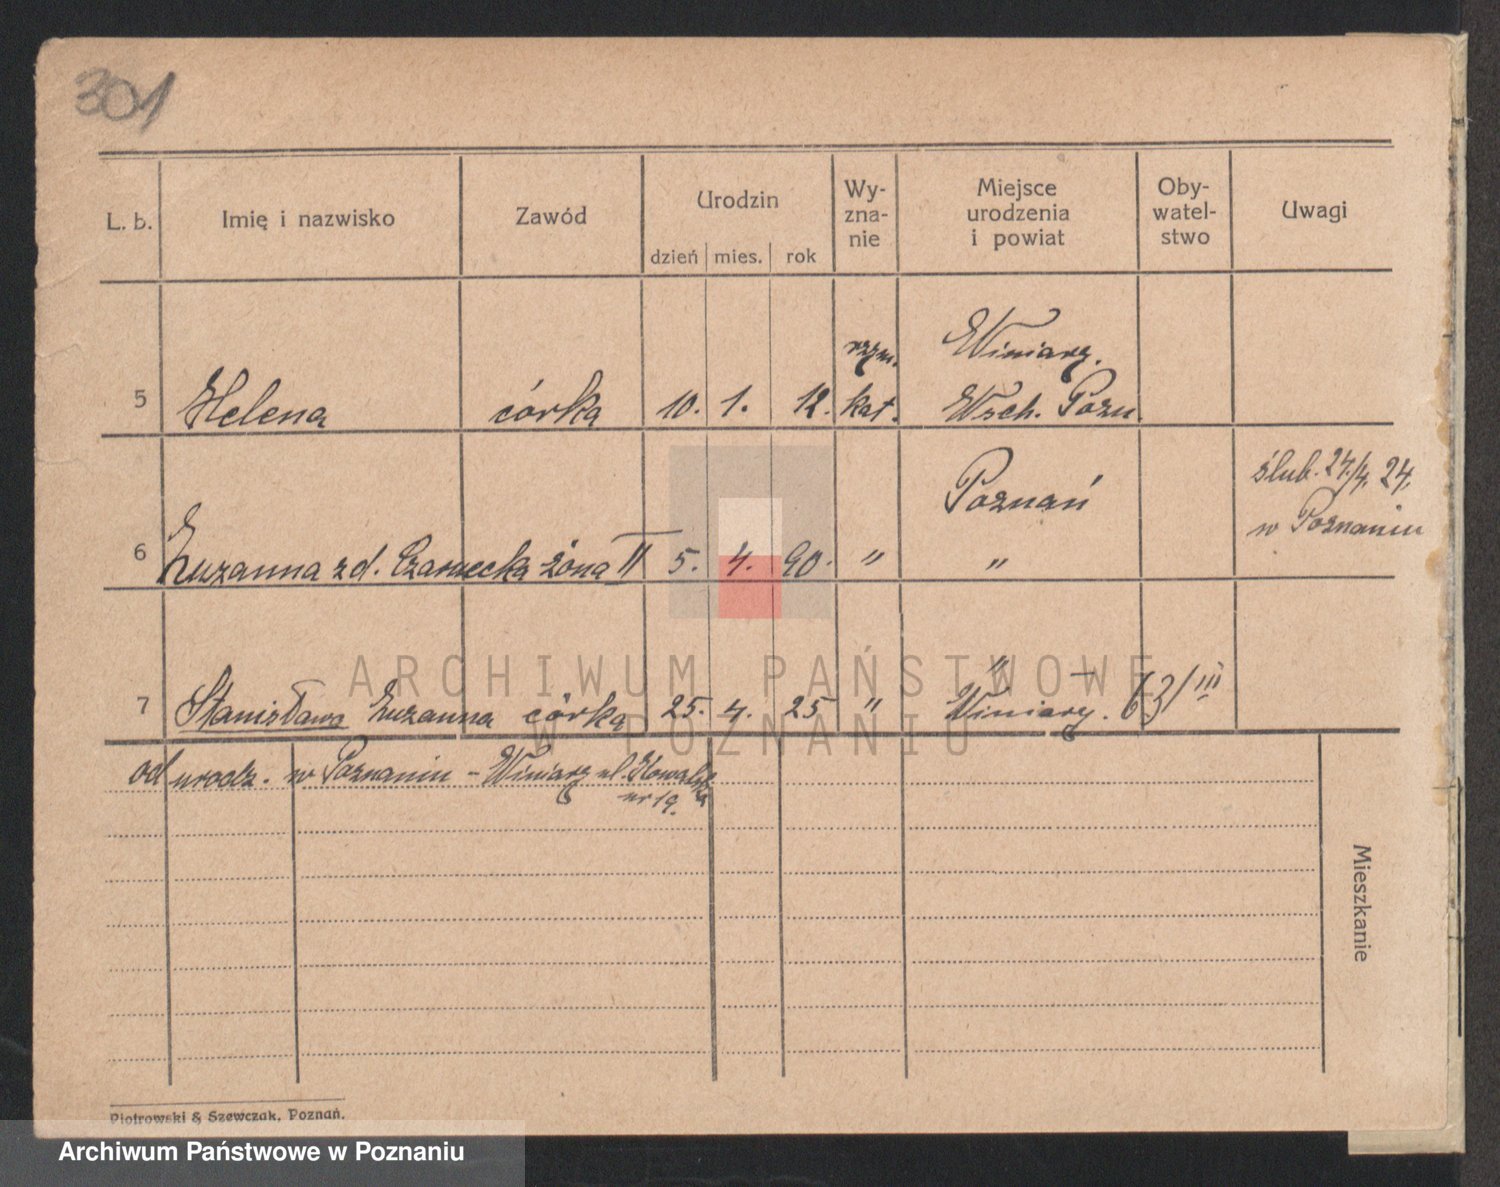 301
L. b. Imię i nazwisko Zawód Urodzin dzień mies. rok Wy-zna-nie Miejsce urodzenia i powiat Oby-watel-stwo Uwagi
rzym. Winiary.
5 Helena córka 10. 1. 12. kat. Wsch. Pozn.
Poznań ślub. 24./4. 24.
w Poznaniu
6 Zuzanna zd. Czarnecka żona II 5. 4. 90. " "
ARCHIWUM PAŃSTWOWE
"
7 Stanisława Zuzanna córka 25. 4. 25 " Winiary. 63/III
W POZNANIU
od urodz. w Poznaniu - Winiary ul.
nr 19.
Mieszkanie
Piotrowski & Szewczak, Poznań.
Archiwum Państwowe w Poznaniu